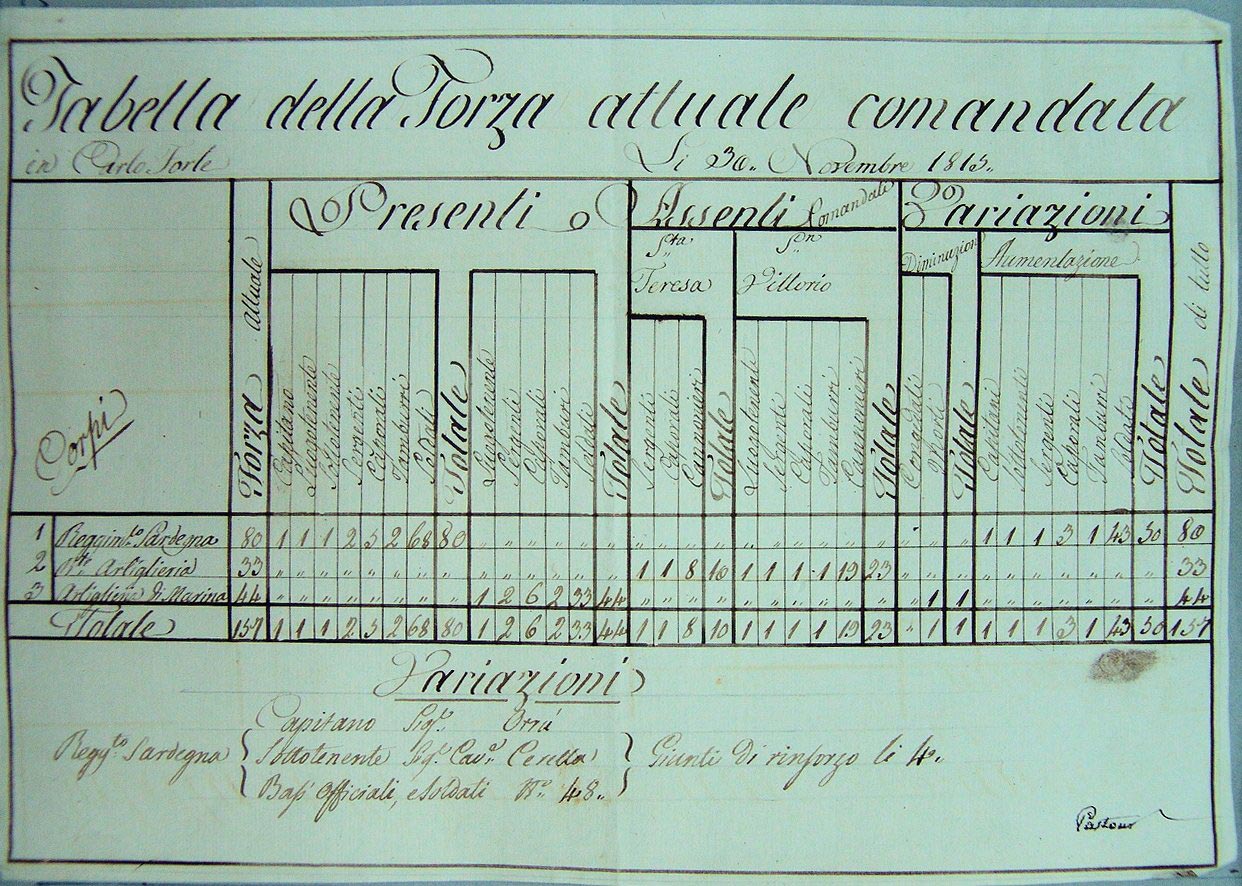 Tabella della Forza attuale comandata
in Carlo Forte Li 30,, Novembre 1813,,
Corpi
Forza attuale
Presenti
Capitano
Luogotenente
Sottotenente
Sergenti
Caporali
Tamburri
Soldati
Totale
Luogotenente
Sergenti
Caporali
Tamburi
Soldati
Totale
Assenti Comandati
Sta Teresa
Sergenti
Caporali
Cannonieri
Totale
Sn Vittorio
Luogotenenti
Sergenti
Caporali
Tamburri
Cannonieri
Totale
Variazioni
Diminuzioni
Congedati
Morti
Totale
Aumentazione
Capitani
Sottotenenti
Sergenti
Caporali
Tamburri
Soldati
Totale
Totale di tutto
1 Reggimto Sardegna 80 1 1 1 2 5 2 68 80 ,, ,, ,, ,, ,, ,, ,, ,, ,, ,, ,, ,, ,, ,, ,, ,, ,, ,, ,, 1 1 1 3 1 43 50 80
2 Artiglieria 33 ,, ,, ,, ,, ,, ,, ,, ,, ,, ,, ,, ,, ,, ,, 1 1 8 10 1 1 1 1 19 23 ,, ,, ,, ,, ,, ,, ,, ,, ,, ,, 33
3 Artiglieria di Marina 44 ,, ,, ,, ,, ,, ,, ,, ,, 1 2 6 2 33 44 ,, ,, ,, ,, ,, ,, ,, ,, ,, ,, ,, 1 1 ,, ,, ,, ,, ,, ,, ,, 44
Totale 157 1 1 1 2 5 2 68 80 1 2 6 2 33 44 1 1 8 10 1 1 1 1 19 23 ,, 1 1 1 1 1 3 1 43 50 157
Variazioni
Capitano Sigr Orrù
Reggto Sardegna Sottotenente Sigr Cavr Giunti di rinforzo li 4,,
Bass' Officiali, e Soldati No 48,,